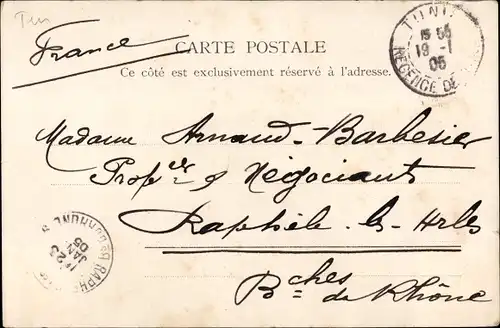 Tun
France
CARTE POSTALE
Ce côté est exclusivement réservé à l'adresse.
TUNIS
15 55
19 -1
05
REGENCE DE
Madame Arnaud-Barbesier
Négociants
Raphèle-les-Arles
Bches
du Rhône
23
JANV
05